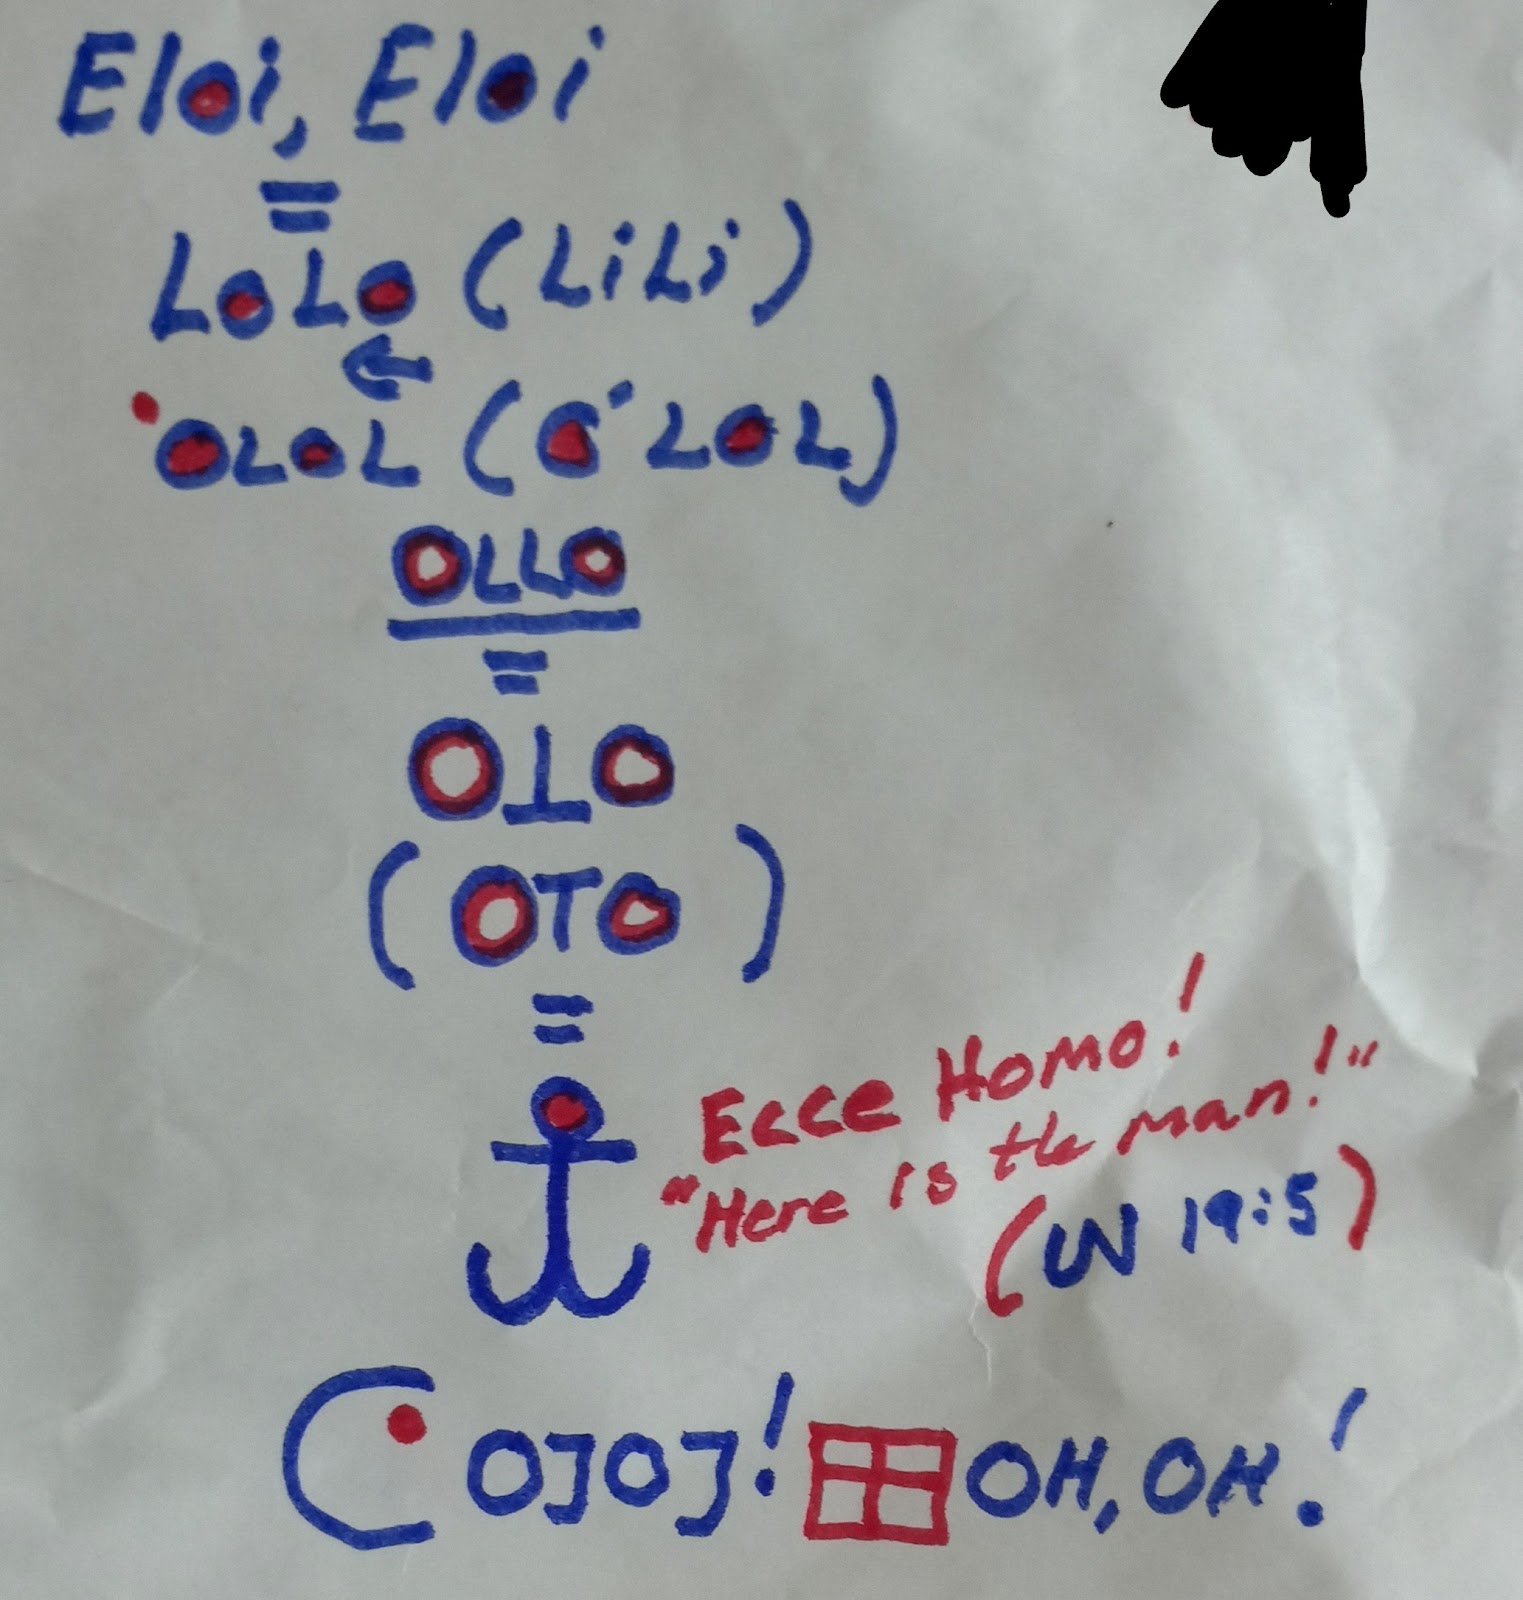 Eloi, Eloi
=
LoLo (LiLi)
OLOL (O'LOL)
OLLO
=
O⊥O
(OTO)
=
Ecce Homo!
"Here is the man!"
(UV 19:5)
OJOJ! OH, OH!